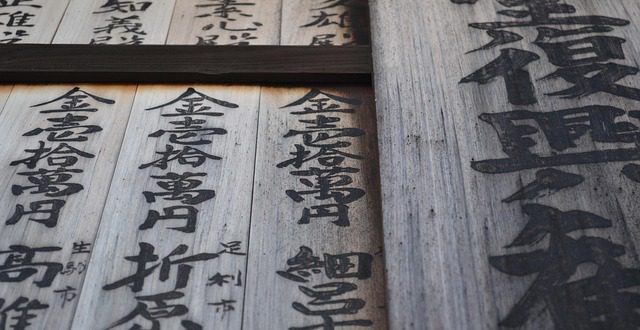 復興
雄殿
素心殿
知義殿
雄殿
金壱拾萬円
細呂
金壱拾萬円
足利市
折原
金壱拾萬円
生駒市
高